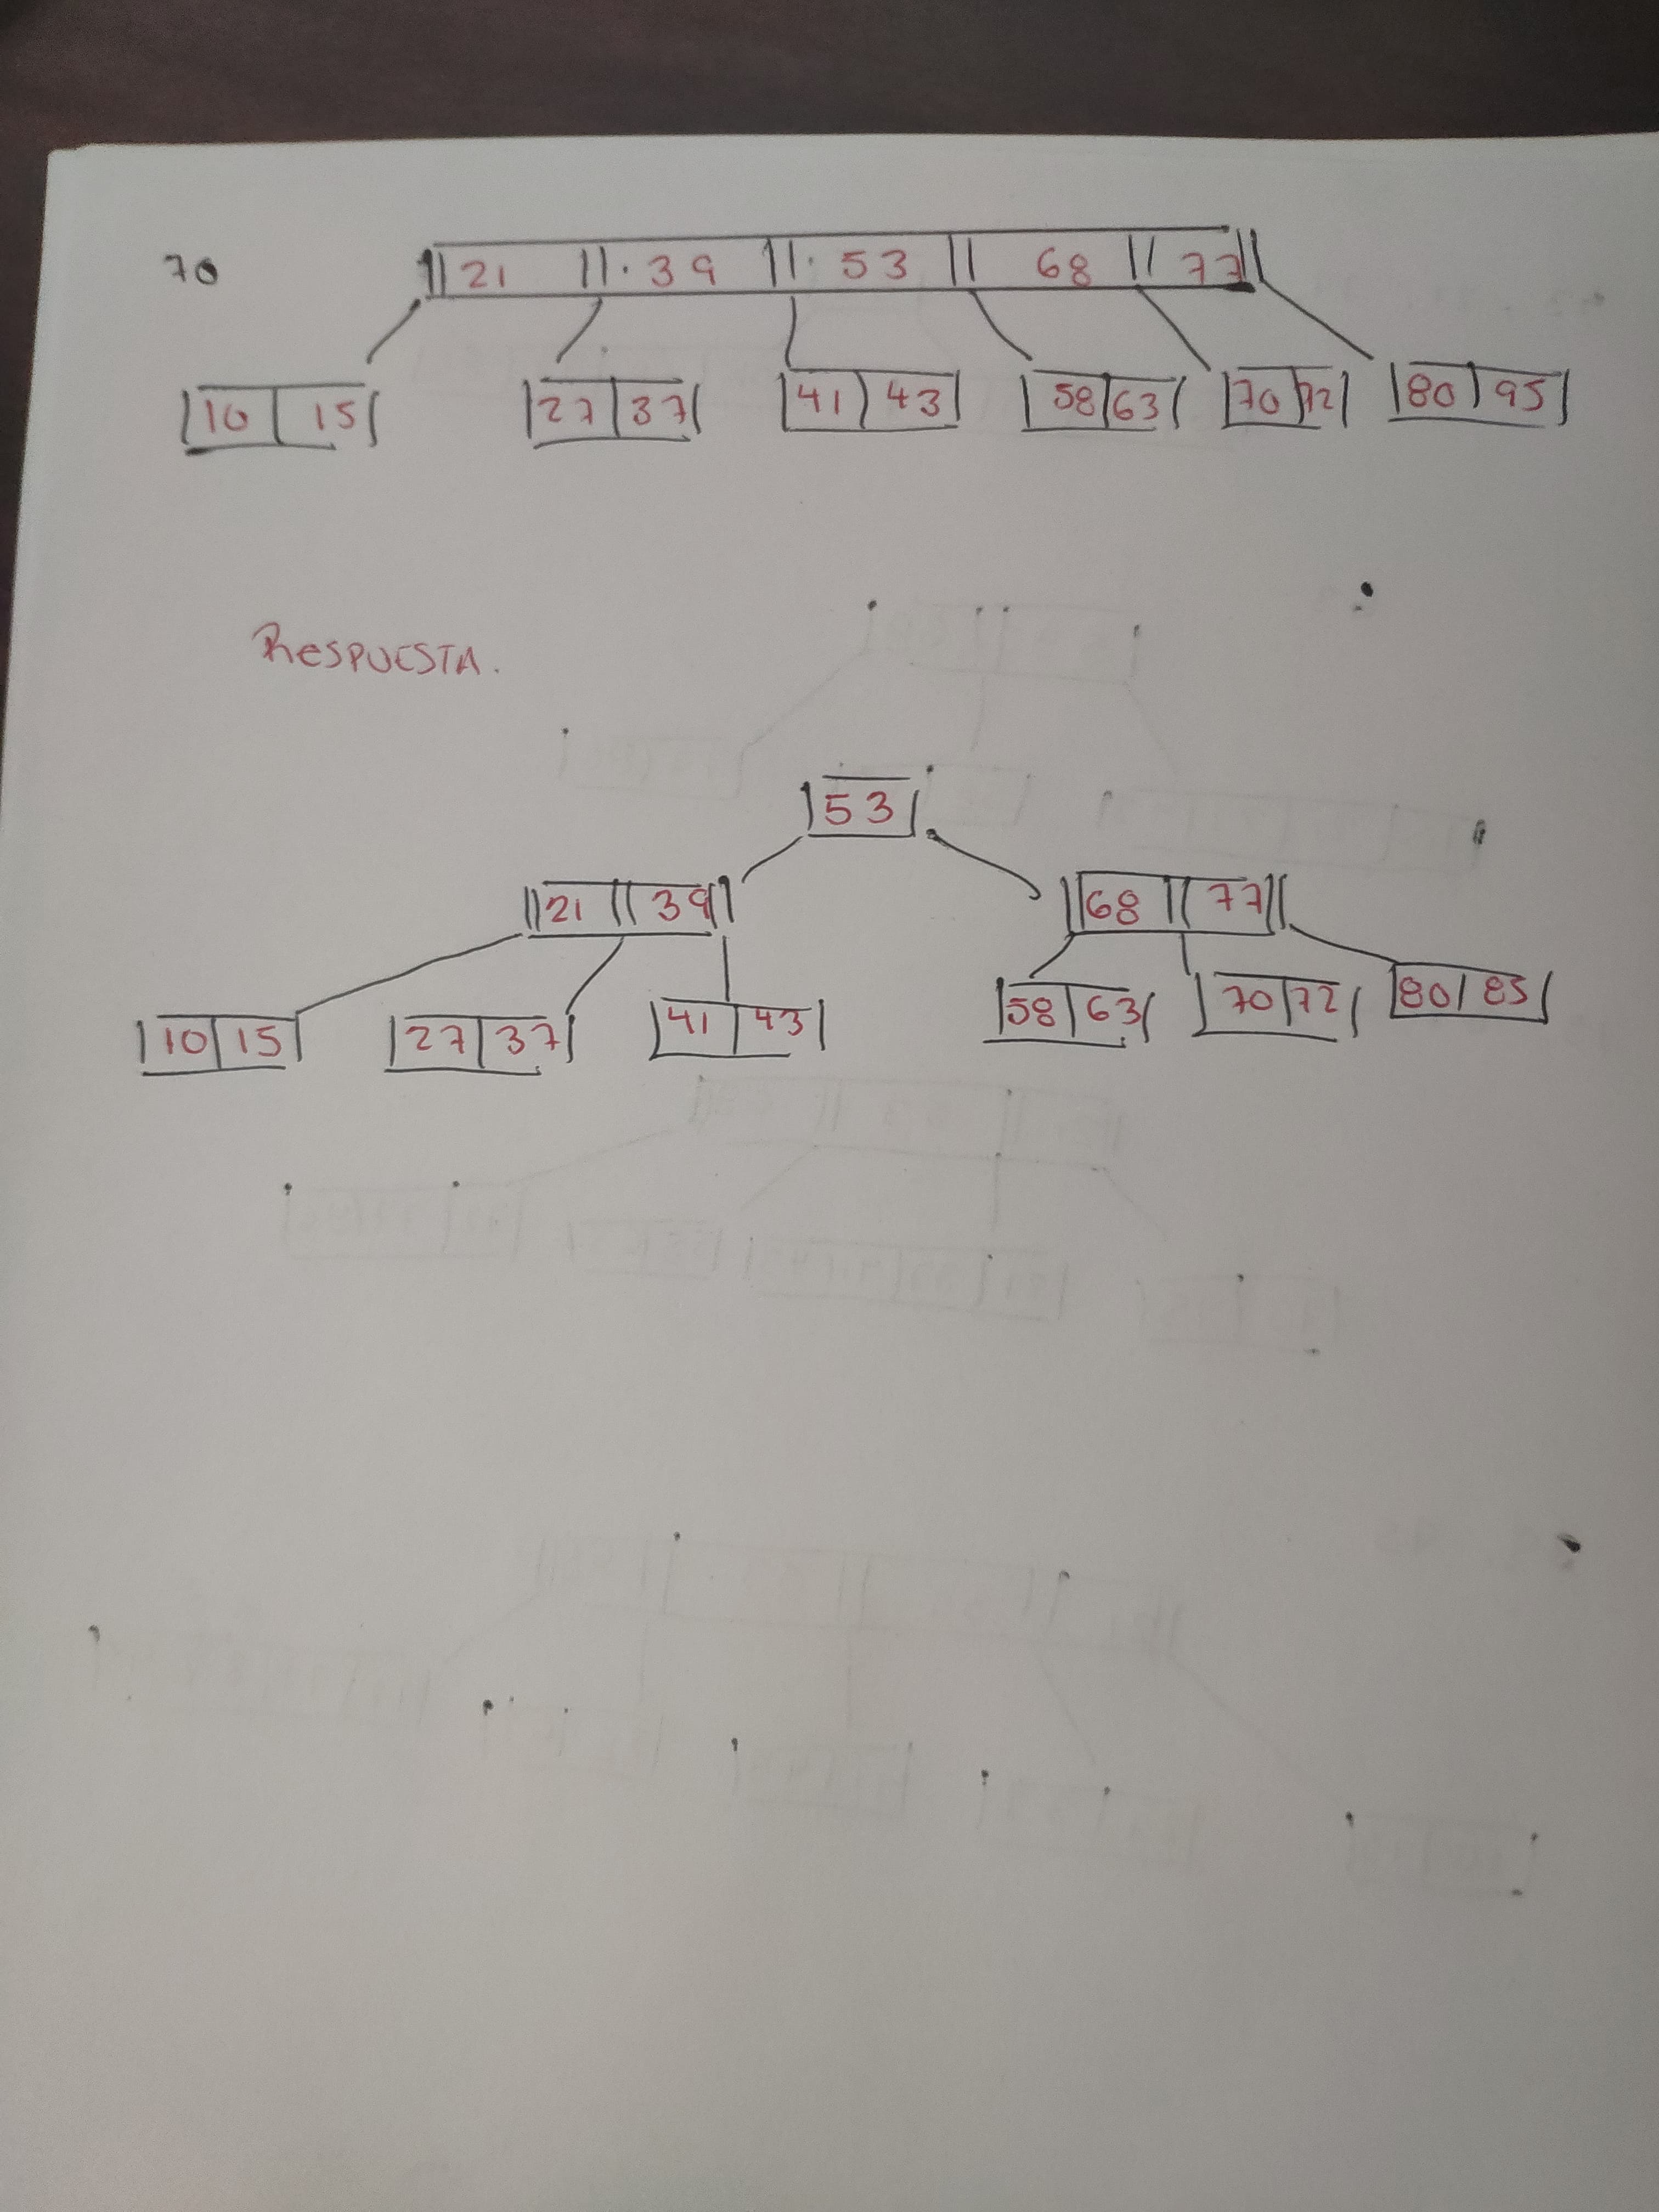 70 21 39 53 68 77
10 15 27 37 41 43 58 63 70 72 80 95
RESPUESTA.
53
21 39 68 77
10 15 27 37 41 43 58 63 70 72 80 85